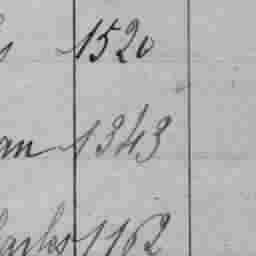 s 1520
an 1343
harks 1162